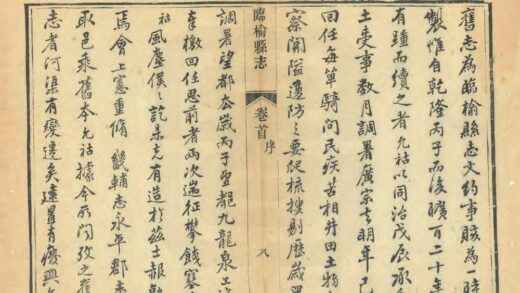 舊志為臨榆縣志文約事賅為一時
製惟自乾隆丙子而後曠百二十年
有踵而續之者允祜以同治戊辰承
土吏事數月調署廣宗去明年己
回任每單騎問民疾苦相井田土物
察關隘邊防之要爬梳搜剔歷歲
臨榆縣志
卷首
序
八
調署望都歲丙子望都九龍泉工
奉檄回任思前者兩次遄征攀餞塞
祜風塵僕之訖未克有造於茲士赧
焉會上憲重脩畿輔志永平郡
取邑乘舊本允祜據今所聞攷之舊
志者河渠有變遷矣建置有廢興